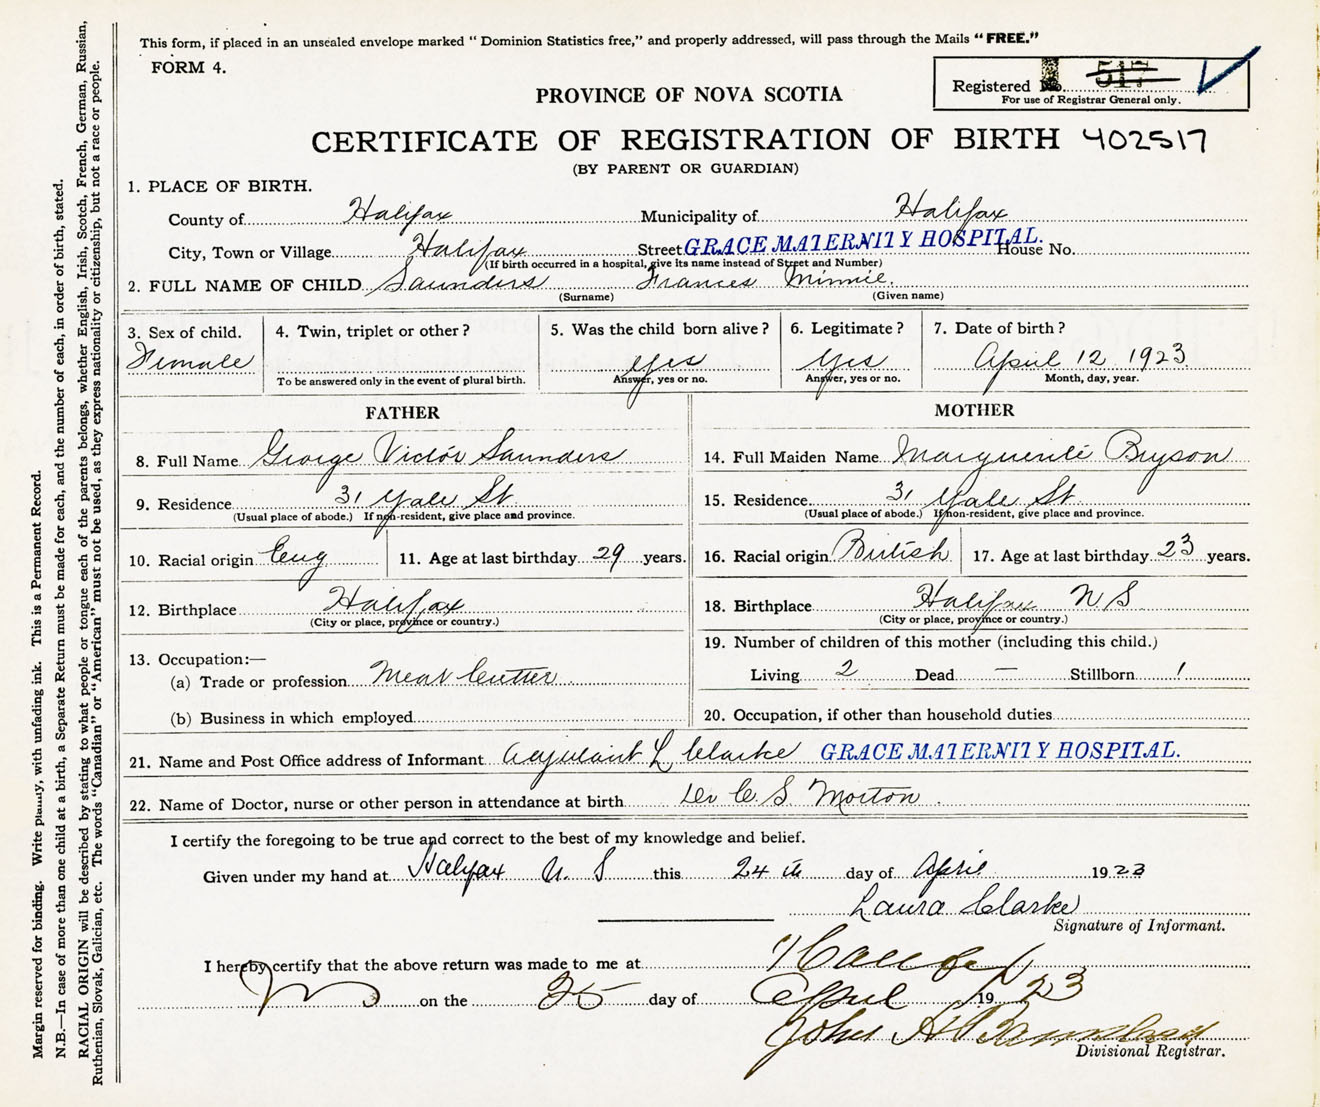 This form, if placed in an unsealed envelope marked "Dominion Statistics free," and properly addressed, will pass through the Mails "FREE."
FORM 4.
Registered No. 517
For use of Registrar General only.
PROVINCE OF NOVA SCOTIA
CERTIFICATE OF REGISTRATION OF BIRTH 402517
(BY PARENT OR GUARDIAN)
1. PLACE OF BIRTH.
County of Halifax Municipality of Halifax
City, Town or Village Halifax Street GRACE MATERNITY HOSPITAL. House No.
(If birth occurred in a hospital, give its name instead of Street and Number)
2. FULL NAME OF CHILD Saunders Frances Minnie.
(Surname) (Given name)
3. Sex of child. 4. Twin, triplet or other? 5. Was the child born alive? 6. Legitimate? 7. Date of birth?
Female Yes Yes April 12 1923
To be answered only in the event of plural birth. Answer, yes or no. Answer, yes or no. Month, day, year.
FATHER MOTHER
8. Full Name George Victor Saunders 14. Full Maiden Name Marguerite Bryson
9. Residence 31 Yale St 15. Residence 31 Yale St
(Usual place of abode.) If non-resident, give place and province. (Usual place of abode.) If non-resident, give place and province.
10. Racial origin Eng 11. Age at last birthday 29 years. 16. Racial origin British 17. Age at last birthday 23 years.
12. Birthplace Halifax 18. Birthplace Halifax N S
(City or place, province or country.) (City or place, province or country.)
13. Occupation:— 19. Number of children of this mother (including this child.)
(a) Trade or profession Meat Cutter Living 2 Dead — Stillborn 1
(b) Business in which employed 20. Occupation, if other than household duties
21. Name and Post Office address of Informant Adjutant L Clarke GRACE MATERNITY HOSPITAL.
22. Name of Doctor, nurse or other person in attendance at birth Dr C. S Morton.
I certify the foregoing to be true and correct to the best of my knowledge and belief.
Given under my hand at Halifax N. S this 24th day of April 1923
Laura Clarke
Signature of Informant.
I hereby certify that the above return was made to me at Halifax
NS on the 25 day of April 1923
John A
Divisional Registrar.
Margin reserved for binding. Write plainly, with unfading ink. This is a Permanent Record.
N.B.—In case of more than one child at a birth, a Separate Return must be made for each, and the number of each, in order of birth, stated.
RACIAL ORIGIN will be described by stating to what people or tongue each of the parents belongs, whether English, Irish, Scotch, French, German, Russian,
Ruthenian, Slovak, Galician, etc. The words "Canadian" or "American" must not be used, as they express nationality or citizenship, but not a race or people.